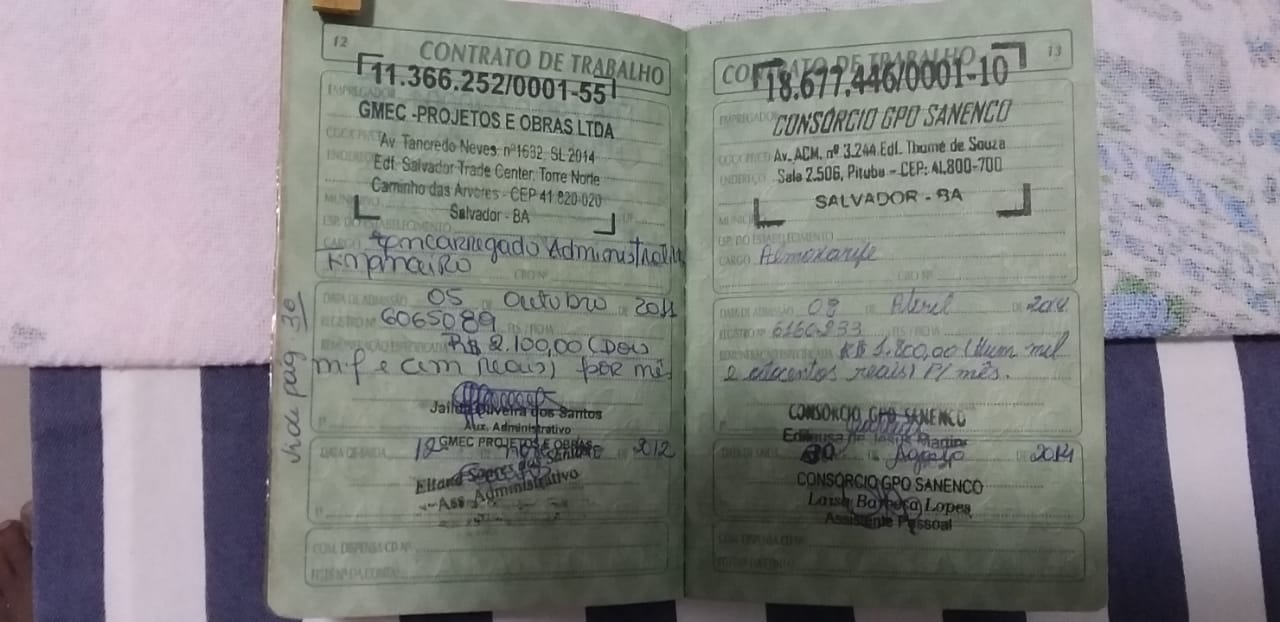 12
CONTRATO DE TRABALHO
11.366.252/0001-55
EMPREGADOR
GMEC -PROJETOS E OBRAS LTDA
Av. Tancredo Neves, nº1632, SL-2014
ENDEREÇO
Edf. Salvador Trade Center, Torre Norte
Caminho das Árvores - CEP 41 820-020
Salvador - BA
ESP. DO ESTABELECIMENTO
CARGO Encarregado Administrativo
CBO Nº
DATA DE ADMISSÃO 05 DE Outubro DE 2011
REGISTRO Nº 6065089 FLS / FICHA
REMUNERAÇÃO ESPECIFICADA R$ 2.100,00 (Dois
mil e cem reais) por mês
Oliveira dos Santos
Aux. Administrativo
GMEC PROJETOS E OBRAS
DATA DE SAÍDA 12 2012
Soares
Ass. Administrativo
COM. DISPENSA CD Nº
FGTS Nº DA CONTA
Vide pág. 30
13
CONTRATO DE TRABALHO
18.677.446/0001-10
EMPREGADOR
CONSÓRCIO GPO SANENCO
Av. ACM, nº 3.244, Edf. Thomé de Souza
ENDEREÇO
Sala 2.506, Pituba - CEP: 41.800-700
SALVADOR - BA
ESP. DO ESTABELECIMENTO
CARGO Almoxarife
CBO Nº
DATA DE ADMISSÃO 08 DE Abril DE 2014
REGISTRO Nº 6160233 FLS / FICHA
REMUNERAÇÃO ESPECIFICADA R$ 1.800,00 (Hum mil
e oitocentos reais) P/ mês.
CONSÓRCIO GPO SANENCO
DATA DE SAÍDA 30 DE Agosto DE 2014
CONSÓRCIO GPO SANENCO
Barbosa Lopes
Assistente Pessoal
COM. DISPENSA CD Nº
FGTS Nº DA CONTA